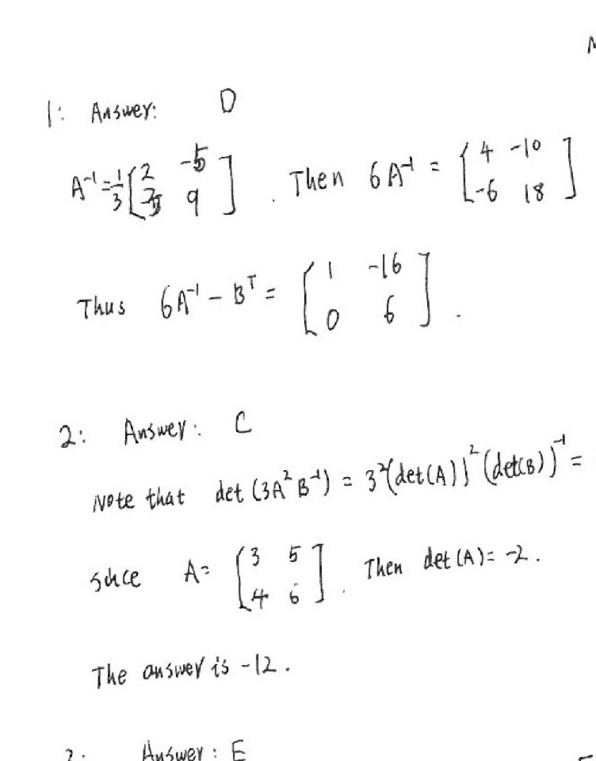 1: Answer: D
A⁻¹ = 1/3 [2 -5; 9]. Then 6A⁻¹ = [4 -10; -6 18]
Thus 6A⁻¹ - Bᵀ = [1 -16; 0 6].
2: Answer: C
Note that det(3A²B⁻¹) = 3²(det(A))²(det(B))⁻¹ =
since A = [3 5; 4 6]. Then det(A) = -2.
The answer is -12.
Answer: E